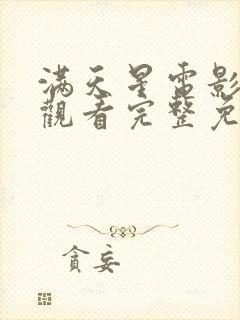 满天星电影
觀看完整免
貪妄